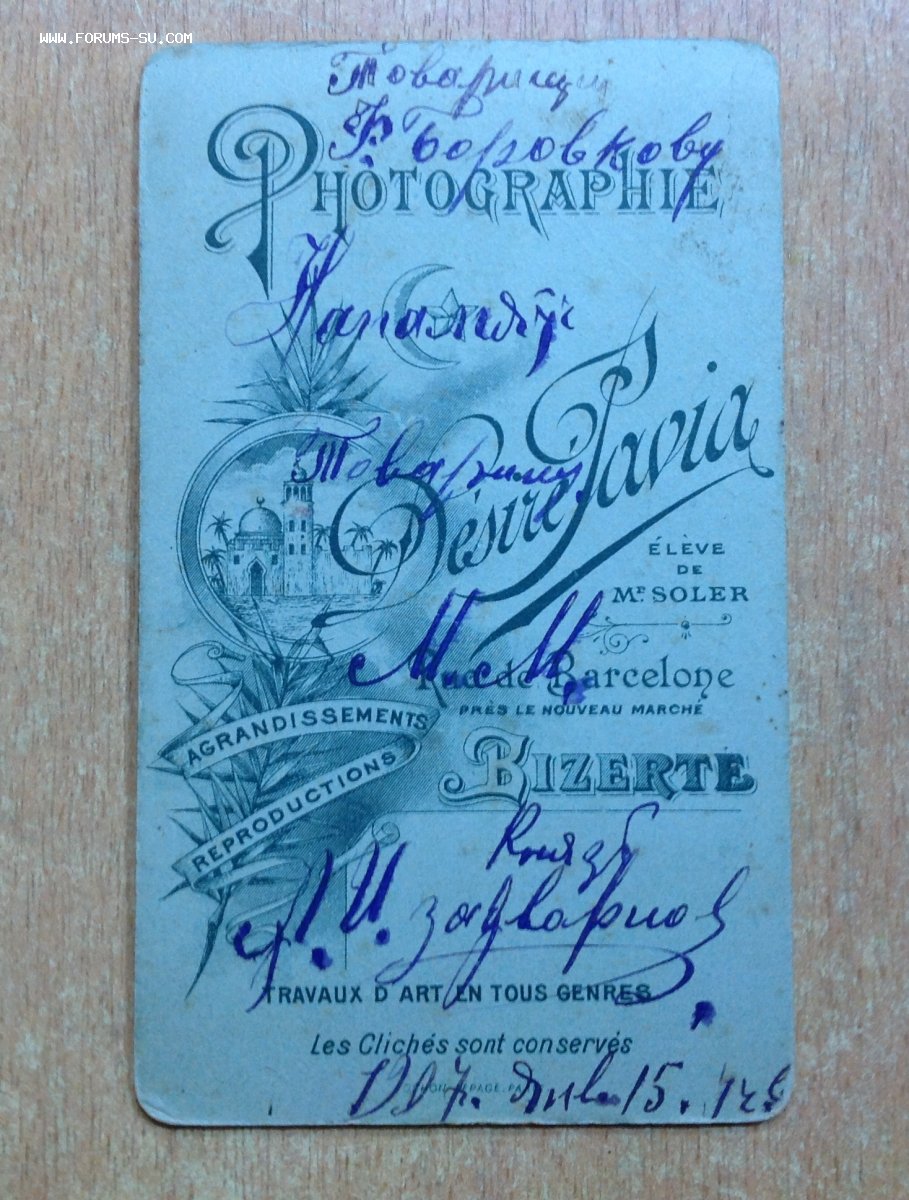 www.forums-su.com
Товарищу
Боровкову
PHOTOGRAPHIE
Товарищу
Désiré Pavia
ÉLÈVE
DE
MR SOLER
М. М.
Rue de Barcelone
PRÈS LE NOUVEAU MARCHÉ
AGRANDISSEMENTS
BIZERTE
REPRODUCTIONS
Князь
И.
TRAVAUX D'ART EN TOUS GENRES
Les Clichés sont conservés
янв. 15.